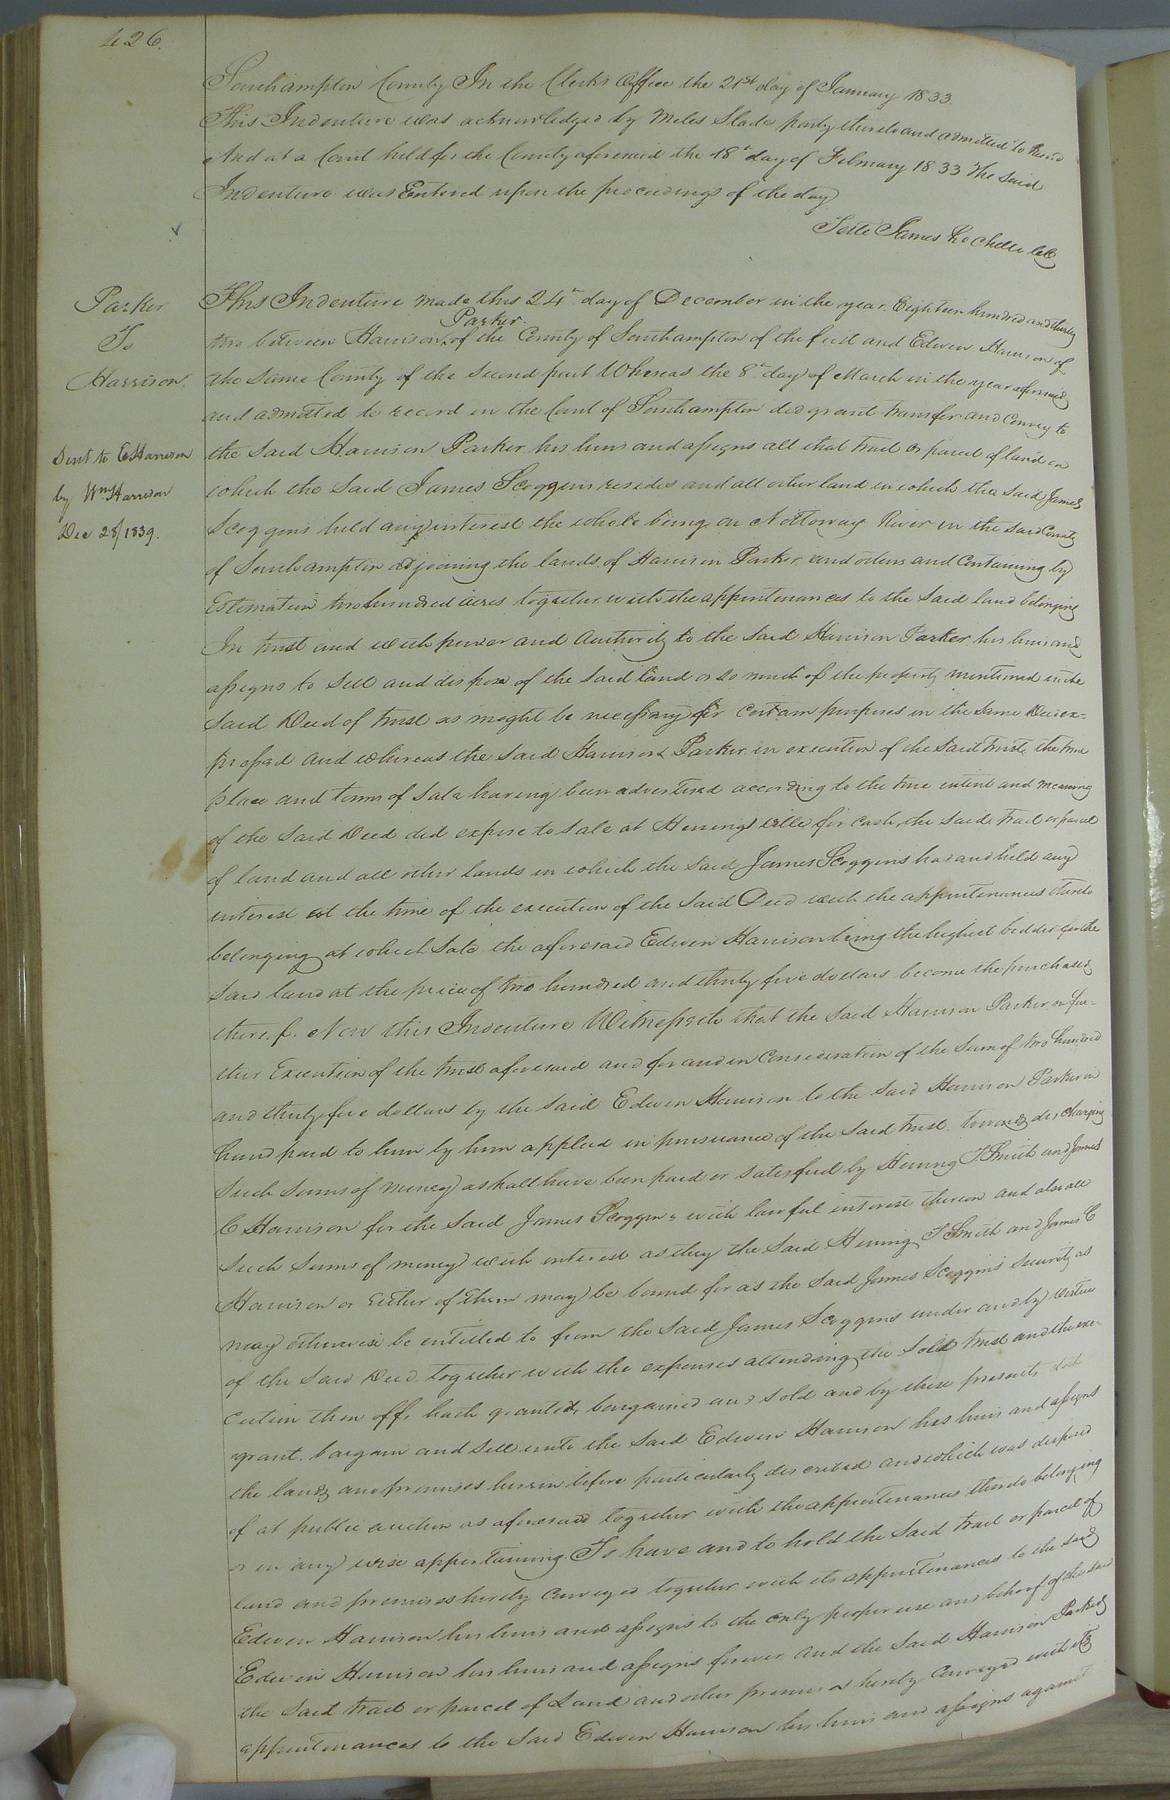 426.
Southampton County In the Clerk's Office the 21st day of January 1833.
This Indenture was acknowledged by Miles Slade party thereto and admitted to Record
And at a Court held for the County aforesaid the 18th day of February 1833 The said
Indenture was Entered upon the proceedings of the day
Teste James Rochelle Clk
Parker
To
Harrison
Sent to E Harrison
by Wm Harrison
Dec 28/1839.
This Indenture made this 24th day of December in the year Eighteen hundred and thirty
two between Harrison Parker of the County of Southampton of the first and Edwin Harrison of
the same County of the second part Whereas the 8th day of March in the year aforesaid
and admitted to record in the Court of Southampton did grant transfer and Convey to
the said Harrison Parker his heirs and assigns all that tract or parcel of land on
which the said James Scoggins resides and all other land in which the said James
Scoggins held any interest the whole being on Nottoway River in the said County
of Southampton adjoining the lands of Harrison Parker and others and Containing by
Estimation two hundred acres together with the appurtenances to the said land belonging
In trust and with power and Authority to the said Harrison Parker his heirs and
assigns to sell and dispose of the said land or so much of the property mentioned in the
said Deed of trust as might be necessary for certain purposes in the same Deed ex-
pressed and whereas the said Harrison Parker in execution of the said trust, the time
place and terms of sale having been advertised according to the true intent and meaning
of the said Deed did expose to sale at Hennings ville for cash, the said tract or parcel
of land and all other lands in which the said James Scoggins had and held any
interest at the time of the execution of the said Deed with the appurtenances thereto
belonging at which sale the aforesaid Edwin Harrison being the highest bidder for the
said land at the price of two hundred and thirty five dollars became the purchaser
thereof. Now this Indenture Witnesseth that the said Harrison Parker in fur-
ther Execution of the trust aforesaid and for and in Consideration of the sum of two hundred
and thirty five dollars by the said Edwin Harrison to the said Harrison Parker in
hand paid to him by him applied in pursuance of the said trust. towards discharging
such sums of money as shall have been paid or satisfied by Hening T Smith and James
C Harrison for the said James Scoggins with lawful interest thereon and also all
such sums of money with interest as they the said Hening T Smith and James C
Harrison or either of them may be bound for as the said James Scoggins security as
may otherwise be entitled to from the said James Scoggins under and by virtue
of the said Deed together with the expenses attending the sold trust and the exe-
cution then off, hath granted, bargained and sold and by these presents doth
grant. bargain and sell unto the said Edwin Harrison his heirs and assigns
the lands and premises herein before particularly described and which was disposed
of at public auction as aforesaid together with the appurtenances thereto belonging
or in any wise appertaining To have and to hold the said tract or parcel of
land and premises hereby Conveyed together with its appurtenances to the said
Edwin Harrison his heirs and assigns to the only proper use and behoof of the said
Edwin Harrison his heirs and assigns forever and the said Harrison Parker
the said tract or parcel of Land and other premises hereby Conveyed with its
appurtenances to the said Edwin Harrison his heirs and assigns against